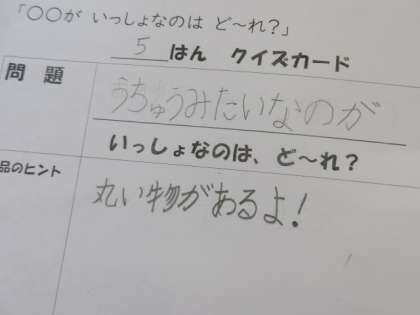 「〇〇が いっしょなのは ど〜れ？」
5はん クイズカード
問題
うちゅうみたいなのが
いっしょなのは、ど〜れ？
品のヒント
丸い物があるよ！